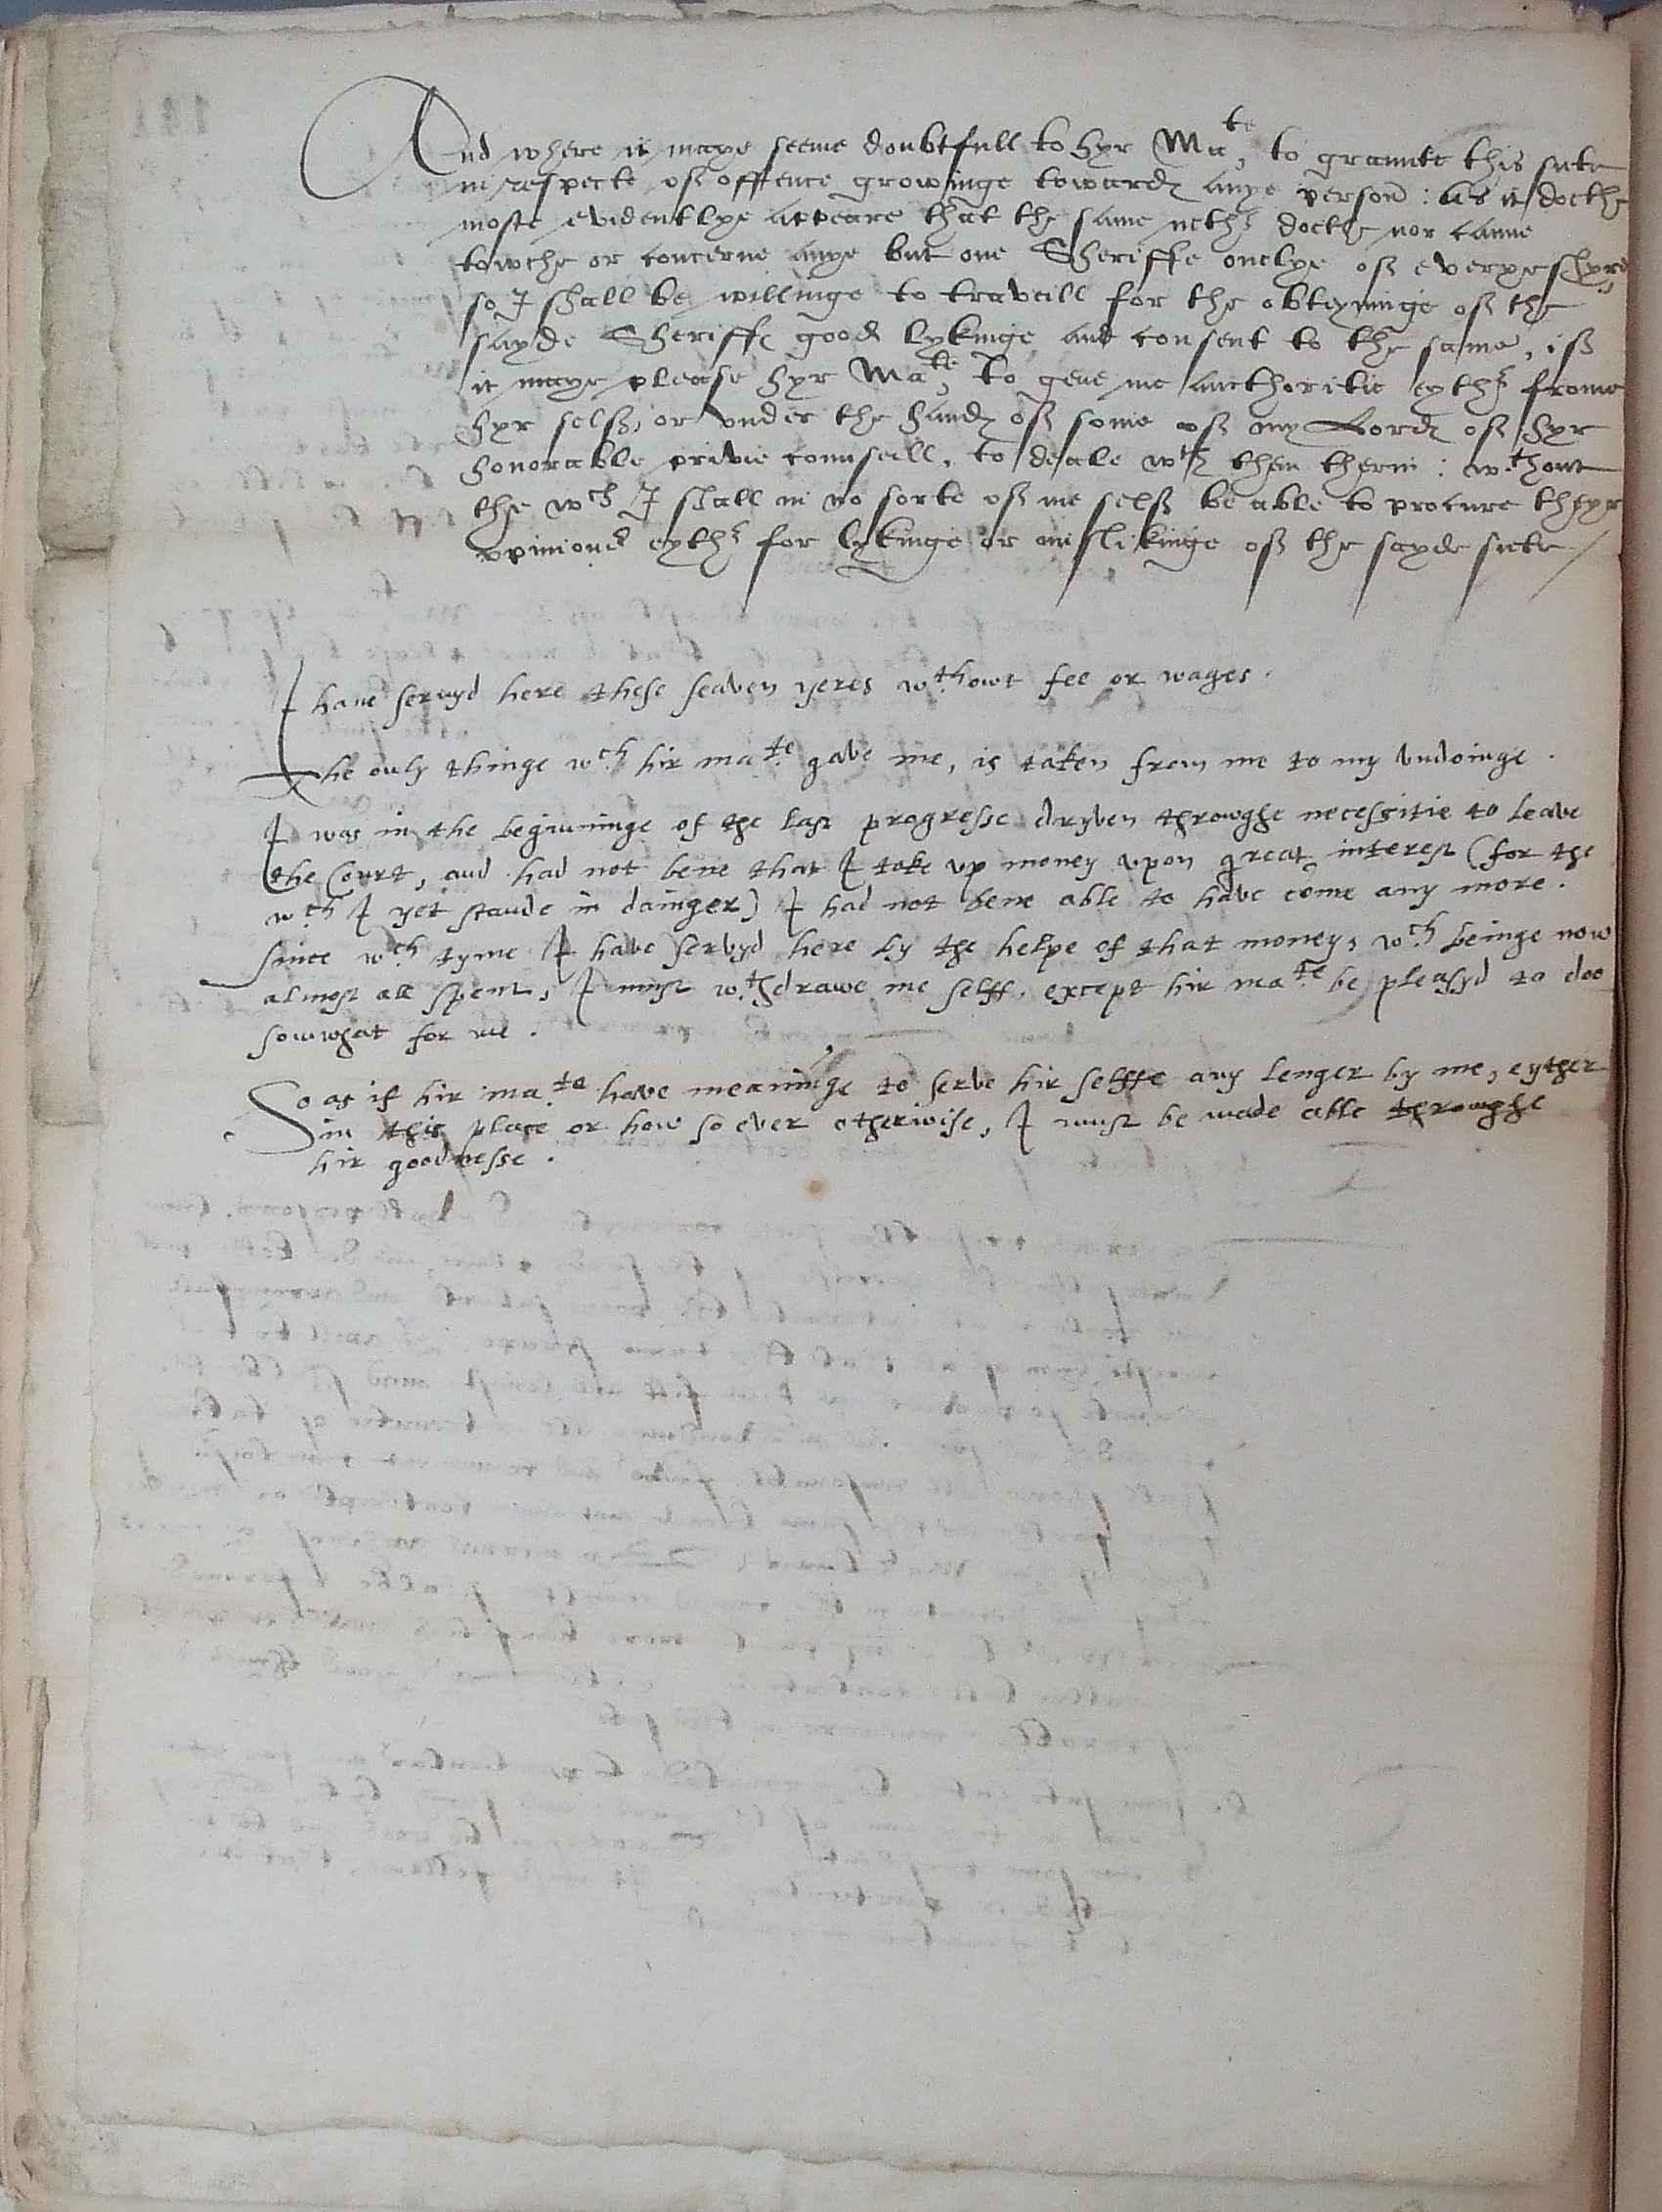 And where it maye seeme doubtfull to hyr Ma^te, to graunte this sute
in respecte of offence growinge towardes anye person: as it doethe
moste evidentlye appeare that the same nether doethe nor canne
towche or concerne anye but one Sheriffe onelye of everye shyre,
so I shall be willinge to travaill for the obteyninge of the
sayde Sheriffes good lykinge and consent to the same, if
it maye please hyr Ma^te, to geve me aucthoritie eyther frome
hyr self, or under the handes of some of my Lordes of hyr
honorable privie counseill, to deale w^th them therin: w^thout
the w^ch I shall in no sorte of me self be able to procure theyr
opinions eyther for lykinge or mislikinge of the sayde sute
I haue seruyd here these seaven yeres w^thowt fee or wages.
The only thinge w^ch hir ma^te gave me, is taken from me to my vndoinge.
I was in the beginninge of the last progresse dryven throwghe necessitie to leave
the Court, and had not bene that I toke vp money vpon great interest (for the
w^ch I yet stande in dainger) I had not bene able to have come any more.
since w^ch tyme I have servyd here by the helpe of that money, w^ch beinge now
almost all spent, I must w^thdrawe me selff, except hir ma^te be pleasyd to doo
somwhat for me.
So as if hir ma^te have meaninge to serve hir selffe any lenger by me, eyther
in this place or how so ever otherwise, I must be made able throwghe
hir goodnesse.